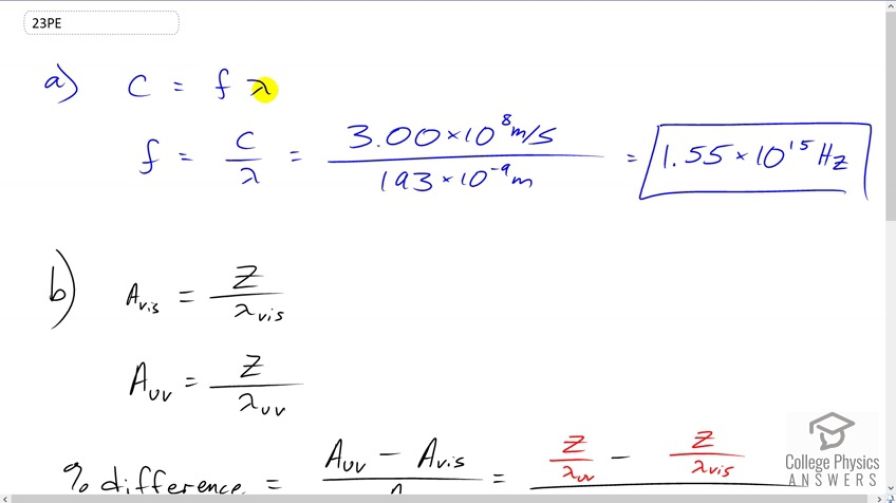 23PE
a) C = f λ
f = C/λ = 3.00×10⁸ m/s / 193×10⁻⁹ m = 1.55×10¹⁵ Hz
b) Avis = Z/λvis
AUV = Z/λUV
% difference = AUV − Avis = Z/λUV − Z/λvis
College Physics
ANSWERS